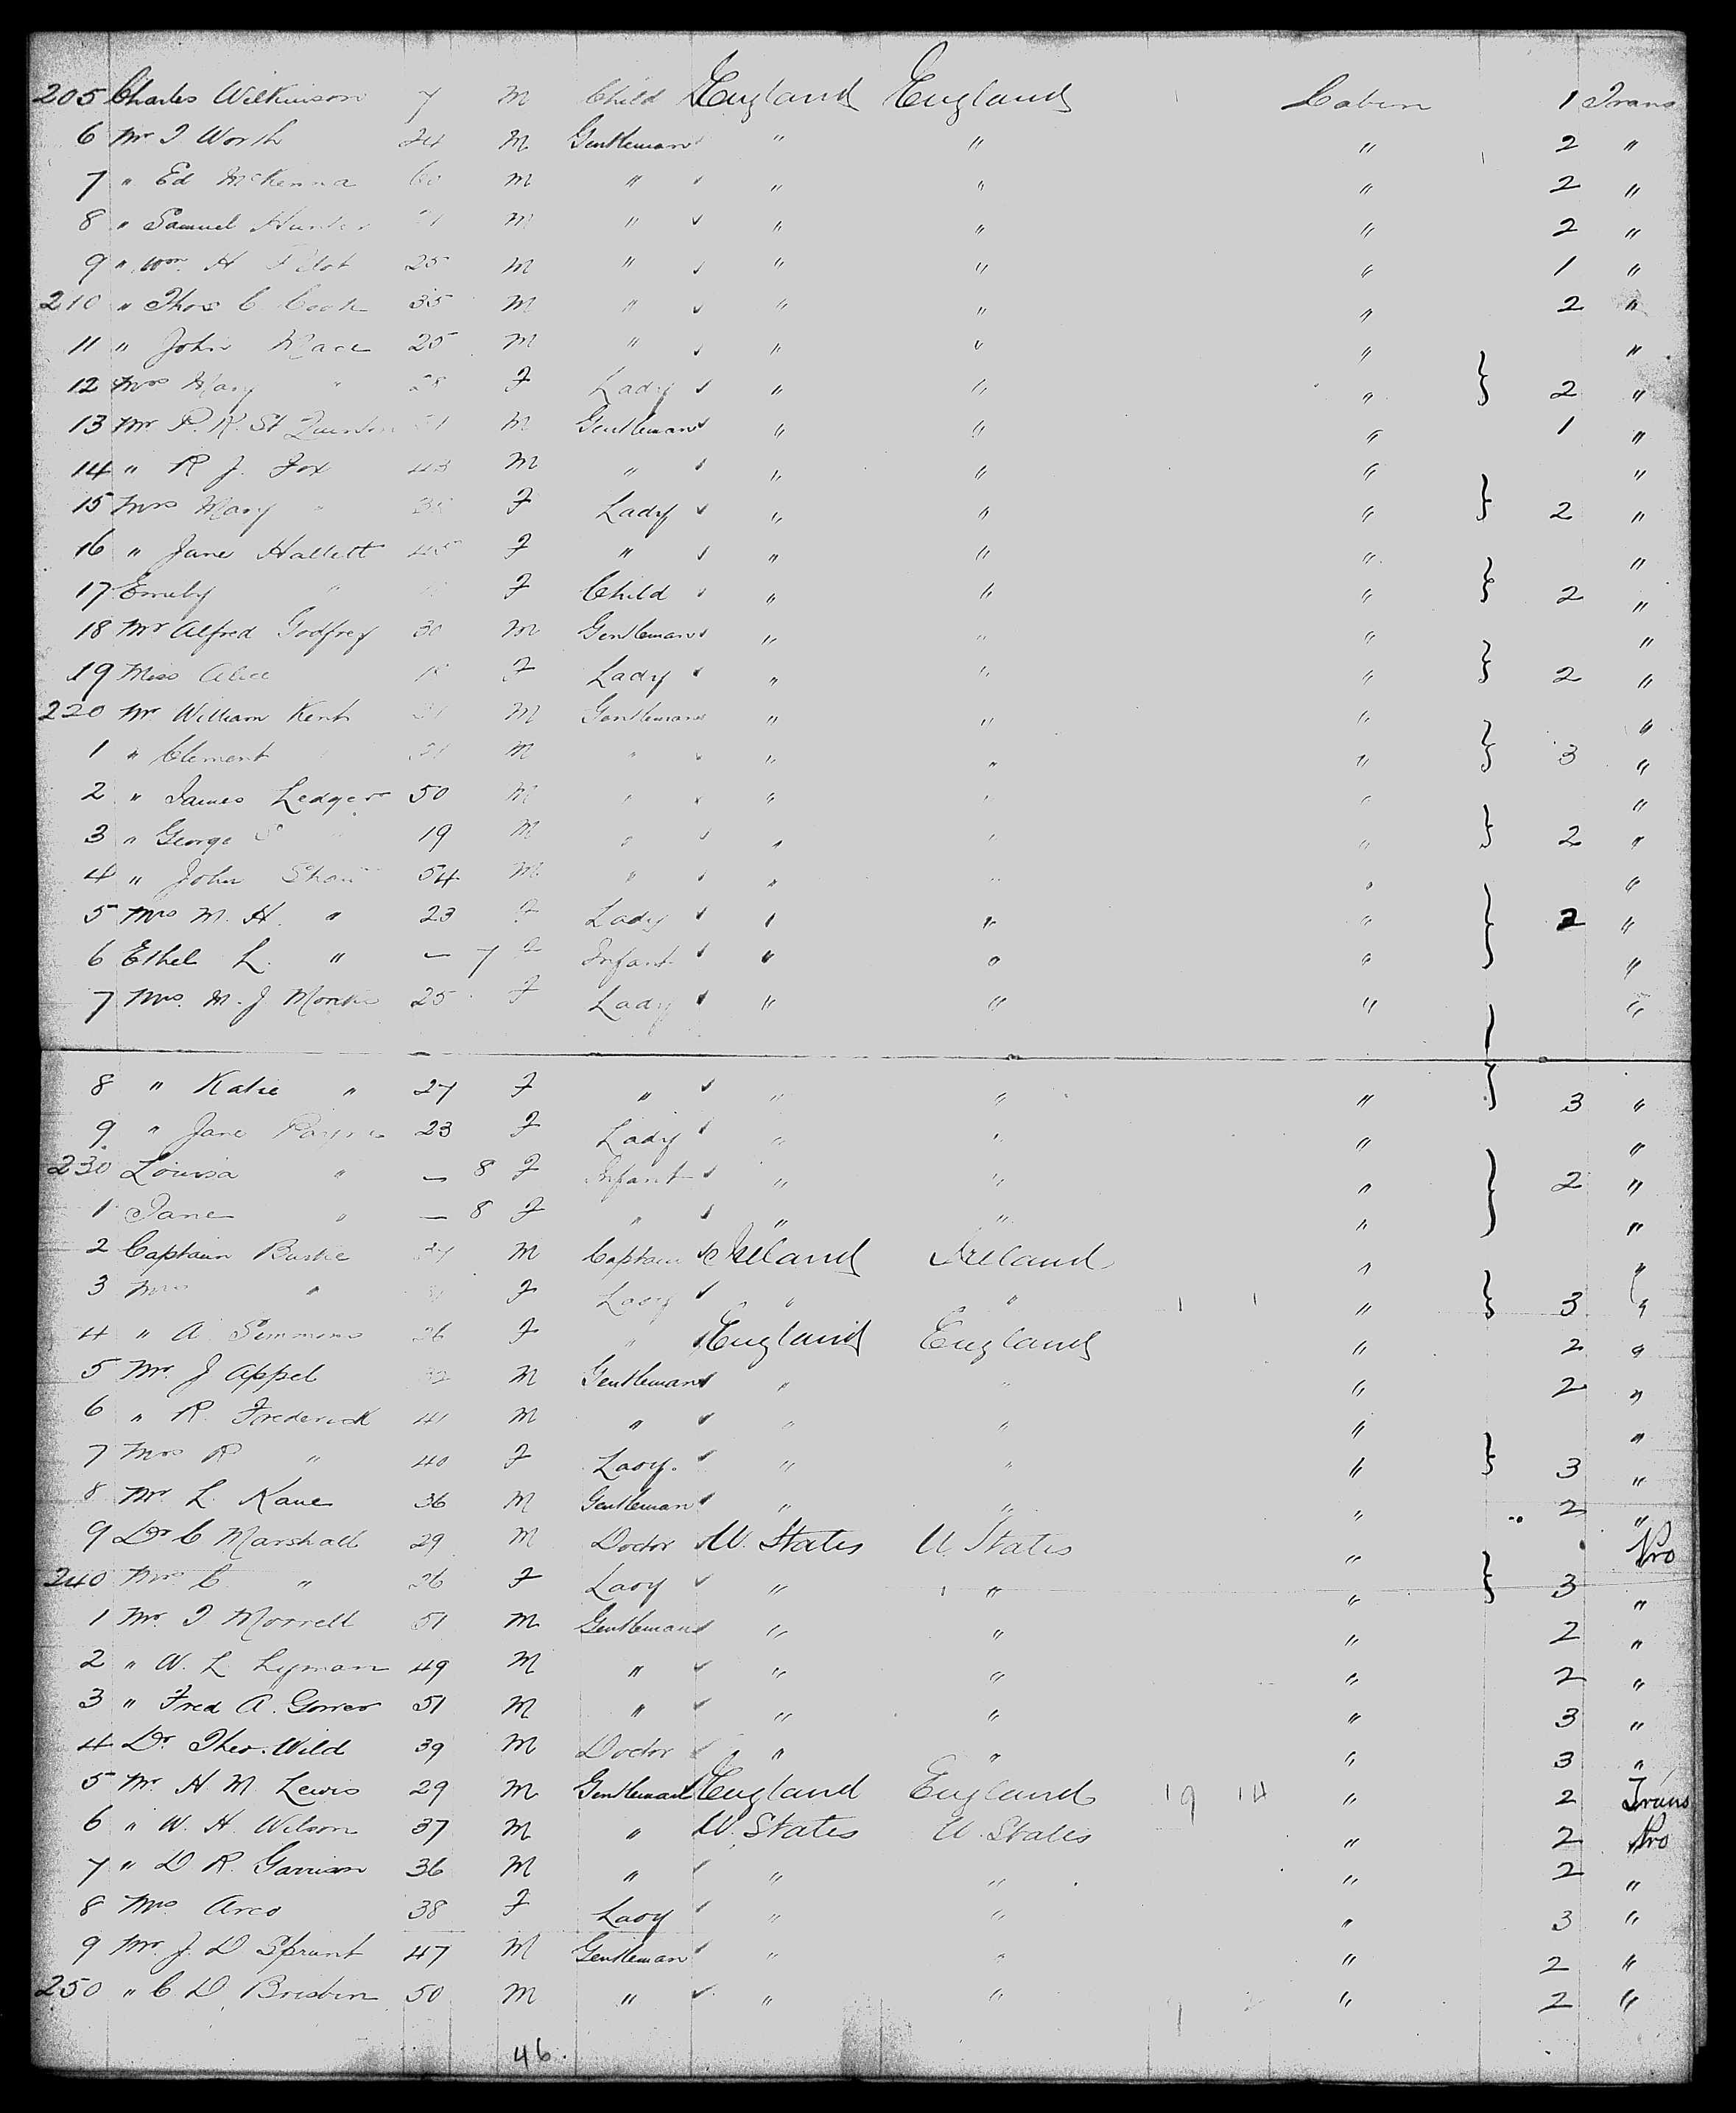 205 Charles Wilkinson 7 M Child England England Cabin 1 Trans
6 Mr J Worth 24 M Gentleman " " " 2 "
7 " Ed McKenna 60 M " " " " 2 "
8 " Samuel Hunter M " " " " 2 "
9 " Wm. H Pilot 25 M " " " " 1 "
210 " Thos C Cook 35 M " " " " 2 "
11 " John Mace 25 M " " " " "
12 Mrs Mary " 28 F Lady " " " } 2 "
13 Mr P. R. St Quinton M Gentleman " " " 1 "
14 " R J. Fox 43 M " " " " "
15 Mrs Mary " F Lady " " " } 2 "
16 " Jane Hallett 45 F " " " " "
17 Emily " F Child " " " } 2 "
18 Mr Alfred Godfrey 30 M Gentleman " " " "
19 Miss Alice F Lady " " " } 2 "
220 Mr William Kent M Gentleman " " " "
1 " Clement M " " " " } 3 "
2 " James Ledger 50 M " " " " "
3 " George S " 19 M " " " " } 2 "
4 " John Shaw 54 M " " " " "
5 Mrs M. H. " 23 F Lady " " " 2 "
6 Ethel L. " - 7 F Infant " " " } "
7 Mrs. M. J 25 F Lady " " " "
8 " Katie " 27 F " " " " } 3 "
9 " Jane Payne 23 F Lady " " " "
230 Louisa " - 8 F Infant " " " } 2 "
1 Jane " - 8 F " " " " "
2 Captain Burke M Captain Ireland Ireland " "
3 Mrs " F Lady " " " } 3 "
4 " A. Simmons 26 F " England England " 2 "
5 Mr. J Appel 32 M Gentleman " " " 2 "
6 " R. Frederick 41 M " " " " "
7 Mrs R " 40 F Lady. " " " } 3 "
8 Mr. L. Kane 36 M Gentleman " " " 2 "
9 Dr C Marshall 29 M Doctor U. States U. States " Pro
240 Mrs C " 26 F Lady " " " } 3 "
1 Mr. J Morrell 51 M Gentleman " " " 2 "
2 " W. L Lyman 49 M " " " " 2 "
3 " Fred A. 51 M " " " " 3 "
4 Dr. Theo. Wild 39 M Doctor " " " 3 "
5 Mr H M Lewis 29 M Gentleman England England 19 14 " 2 Trans
6 " W. H. Wilson 37 M " U. States U. States " 2 Pro
7 " D R. Garrison 36 M " " " " 2 "
8 Mrs Arco 38 F Lady " " " 3 "
9 Mr. J. D Sprunt 47 M Gentleman " " " 2 "
250 " C D. Brisbin 50 M " " " " 2 "
46.